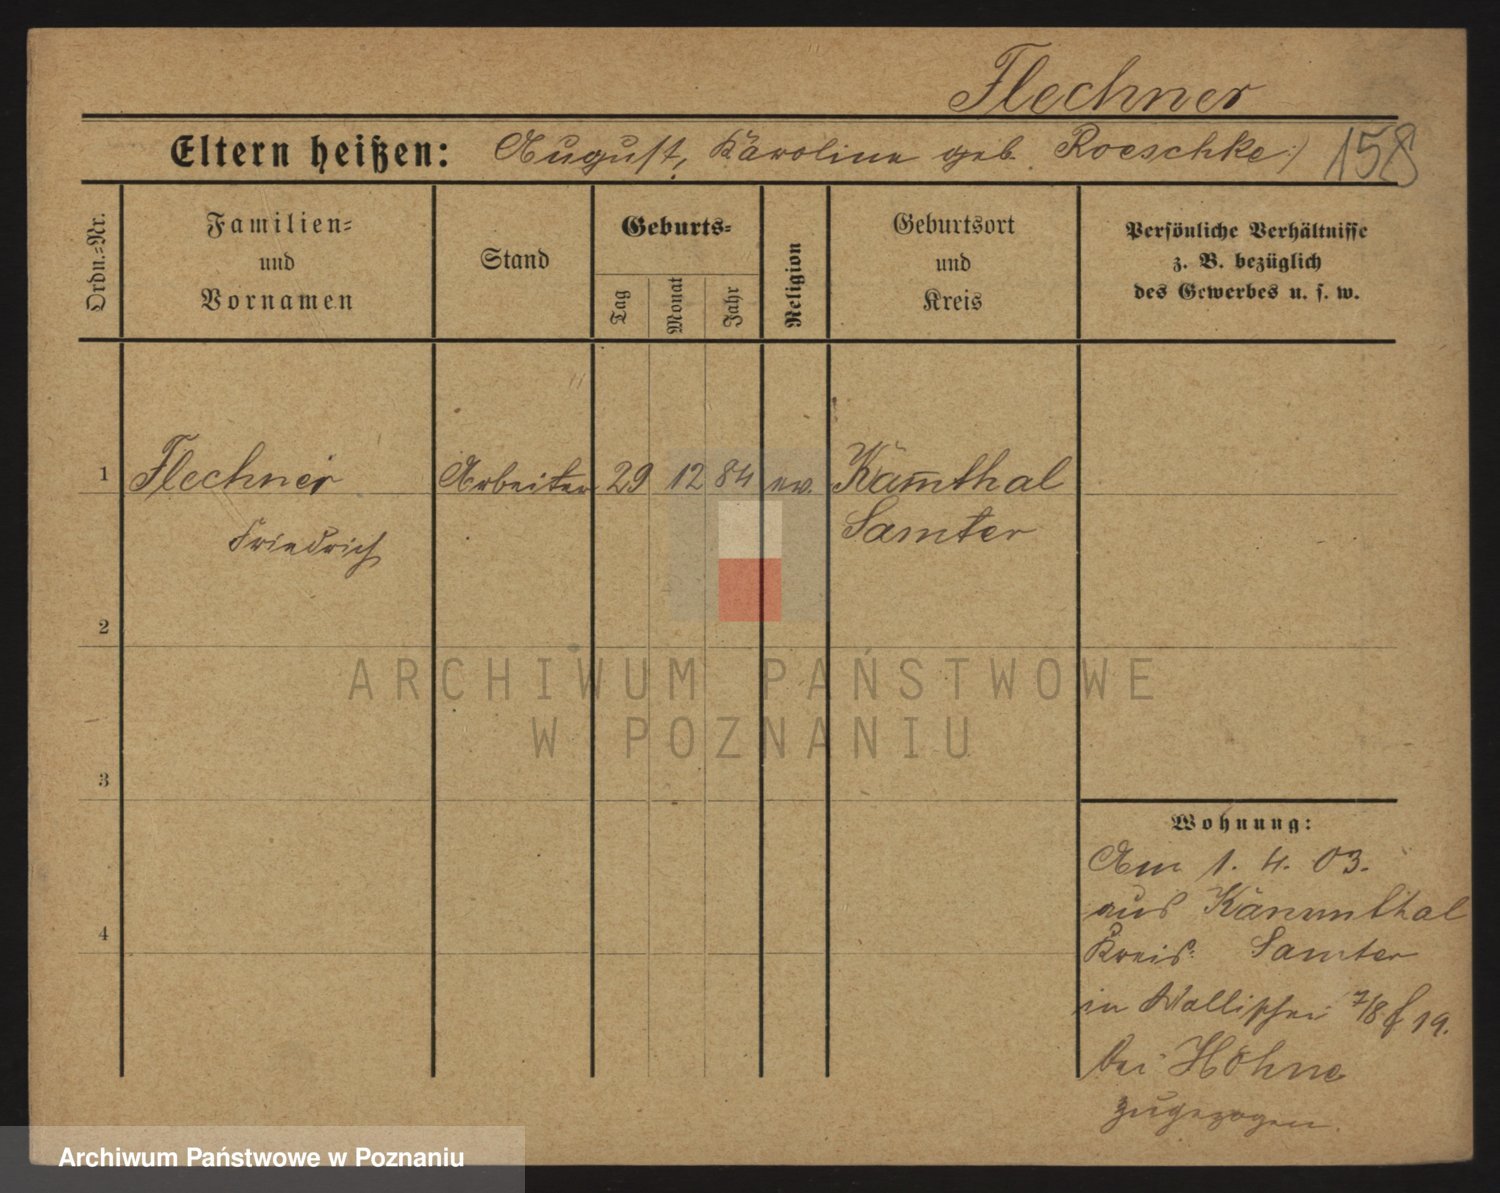 Flechner
Eltern heißen: August, Karoline geb. Roeschke:/ 158
Ordn.-Nr.
Familien-
und
Vornamen
Stand
Geburts-
Tag
Monat
Jahr
Religion
Geburtsort
und
Kreis
Persönliche Verhältnisse
z. B. bezüglich
des Gewerbes u. s. w.
1 Flechner Arbeiter 29 12 84 ev. Kam̄thal
Friedrich Samter
2
ARCHIWUM PAŃSTWOWE
W POZNANIU
3
Wohnung:
Am 1. 4. 03.
aus Kammthal
4
Kreis Samter
in Wallischei 7/8 19.
bei Höhne
zugezogen.
Archiwum Państwowe w Poznaniu